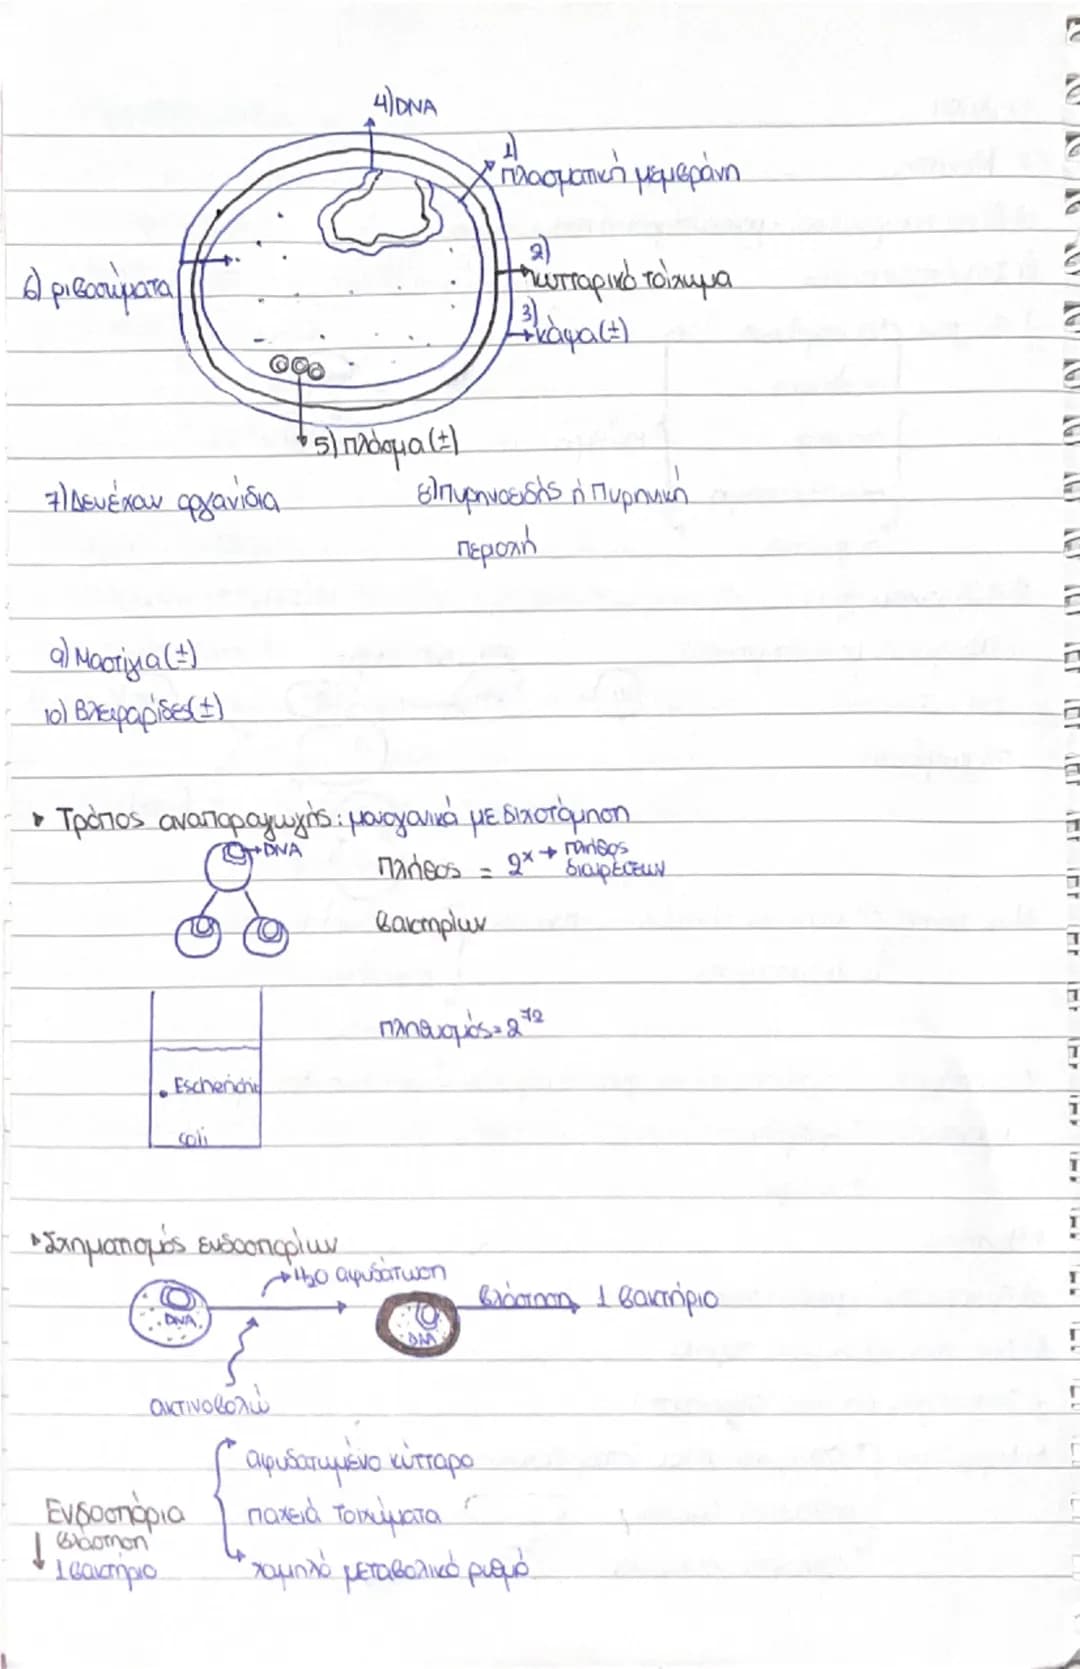 4) DNA
1)
πλασματική μεμβράνη
2)
κυτταρικό τοίχωμα
6) ριβοσώματα
3)
κάψα (±)
5) πλάσμα (±)
7) Δεν έχουν οργανίδια
8) Πυρηνοειδής ή Πυρηνική
περιοχή
9) Μαστίγια (±)
10) Βλεφαρίδες (±)
Τρόπος αναπαραγωγής: μονογονικά με διχοτόμηση
DNA
Πλήθος = 2ˣ → πλήθος
διαιρέσεων
βακτηρίων
πληθυσμός = 2⁷²
Escherichia
coli
Σχηματισμός ενδοσπορίων
H₂O αφυδάτωση
βλάστηση 1 βακτήριο
DNA
DNA
ακτινοβολώ
αφυδατωμένο κύτταρο
Ενδοσπόρια
παχειά τοιχώματα
βλάστηση
1 βακτήριο
χαμηλό μεταβολικό ρυθμό